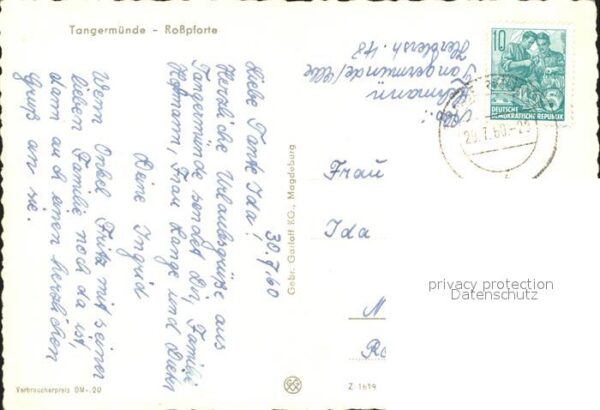 Tangermünde - Roßpforte
30.7.60
Liebe Tante Ida!
Herzliche Urlaubsgrüße aus
Tangermünde sendet Dir, Familie
Hofmann, Frau Lange und Dieter
Deine Ingrid
Wenn Onkel Fritz mit seiner
lieben Familie noch da ist,
dann auch einen herzlichen
Gruß an sie.
Verbraucherpreis DM-.20
Gebr. Garloff KG., Magdeburg
Z 1619
Abs.:
Tangermünde/Elbe
10
DEUTSCHE
DEMOKRATISCHE REPUBLIK
.7.60.-
Frau
Ida
privacy protection
Datenschutz